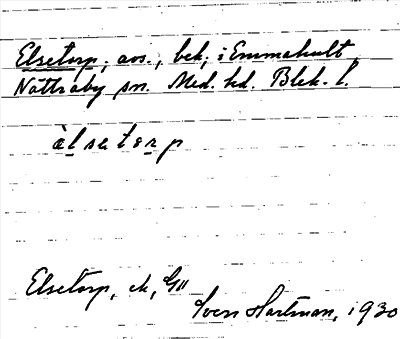 Elsetorp, avs., bek. i Emmahult,
Nättraby sn. Med. hd. Blek. l.
àlsetɛrp
Elsetorp, ek, GU
Sven Hartman, 1930